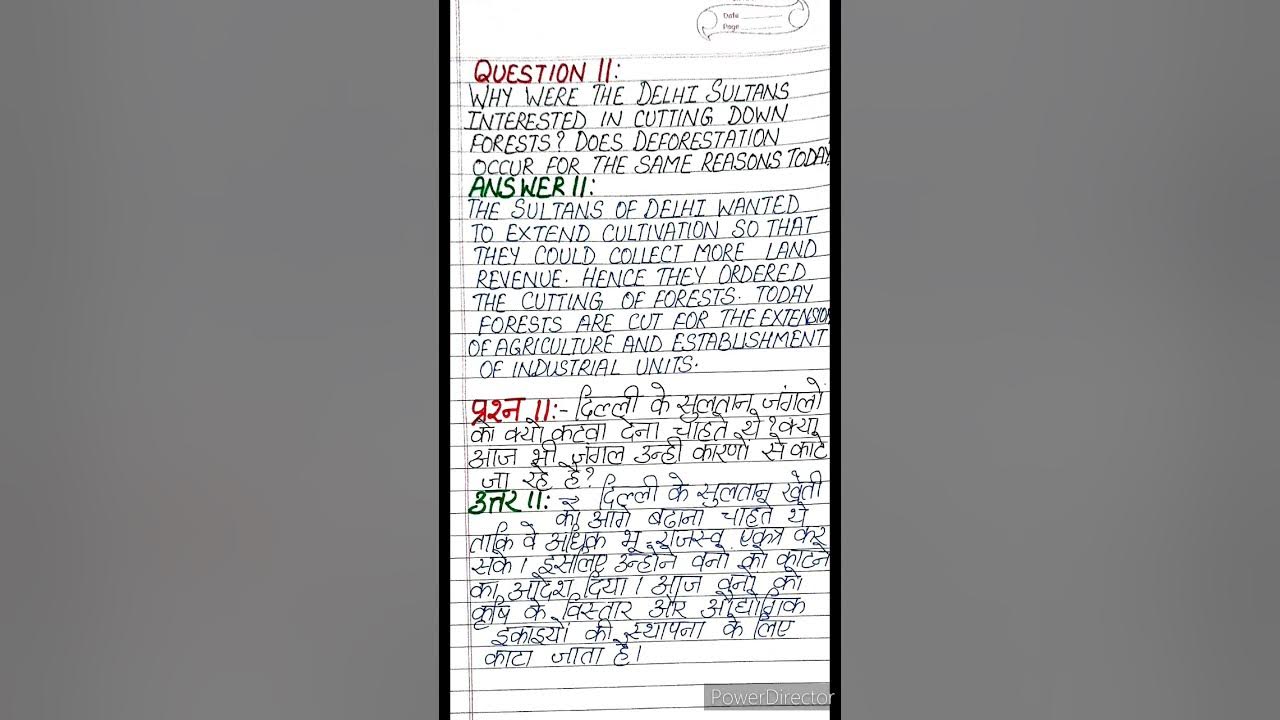 Date
Page
QUESTION 11:
WHY WERE THE DELHI SULTANS
INTERESTED IN CUTTING DOWN
FORESTS? DOES DEFORESTATION
OCCUR FOR THE SAME REASONS TODAY?
ANSWER 11:
THE SULTANS OF DELHI WANTED
TO EXTEND CULTIVATION SO THAT
THEY COULD COLLECT MORE LAND
REVENUE. HENCE THEY ORDERED
THE CUTTING OF FORESTS. TODAY
FORESTS ARE CUT FOR THE EXTENSION
OF AGRICULTURE AND ESTABLISHMENT
OF INDUSTRIAL UNITS.
प्रश्न 11:- दिल्ली के सुलतान जंगलों
को क्यों कटवा देना चाहते थे? क्या
आज भी जंगल उन्हीं कारणों से काटे
जा रहे हैं?
उत्तर 11:- दिल्ली के सुलतान खेती
को आगे बढ़ाना चाहते थे
ताकि वे अधिक भू-राजस्व एकत्र कर
सकें। इसलिए उन्होंने वनों को काटने
का आदेश दिया। आज वनों को
कृषि के विस्तार और औद्योगिक
इकाइयों की स्थापना के लिए
काटा जाता है।
PowerDirector